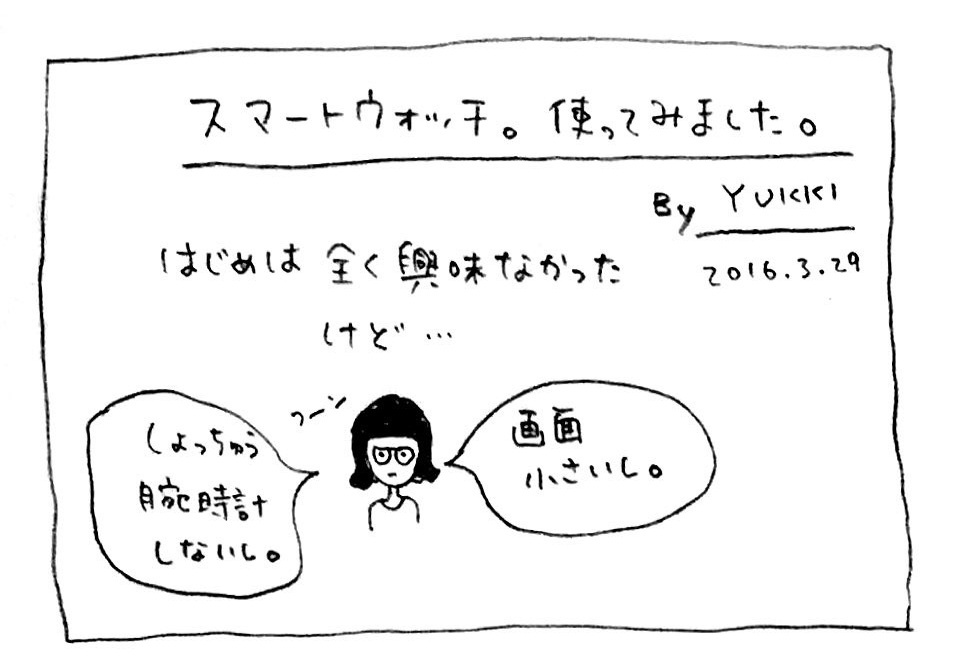 スマートウォッチ。使ってみました。
By YUKKI
2016.3.29
はじめは 全く興味なかった
けど…
フーン
画面
小さいし。
しょっちゅう
腕時計
しないし。